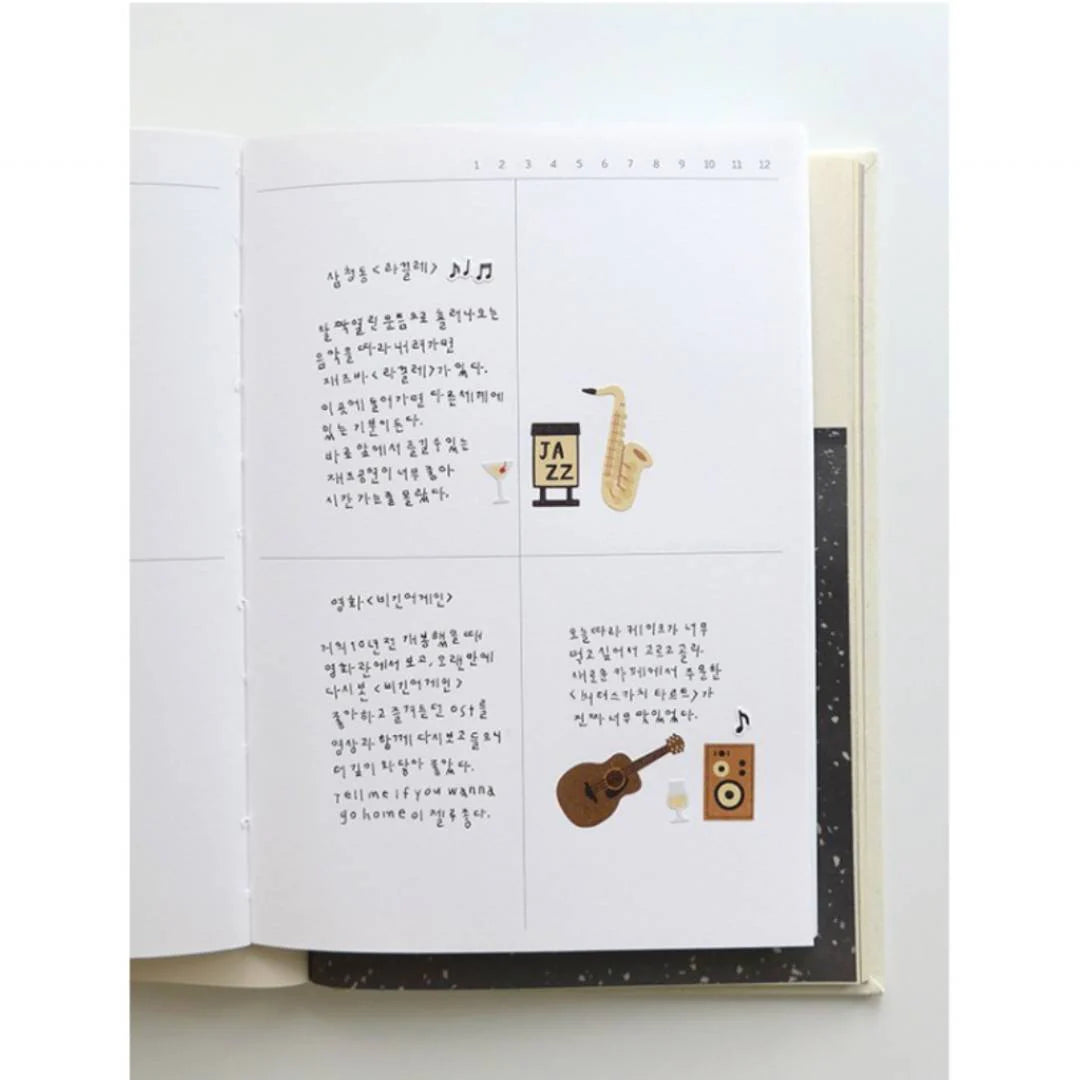 1 2 3 4 5 6 7 8 9 10 11 12
삼청동 <라끌레>
활짝 열린 문틈으로 흘러나오는
음악을 따라 내려가면
재즈바 <라끌레>가 있다.
이곳에 들어가면 다른세계에
있는 기분이 든다.
바로 앞에서 즐길 수 있는
재즈공연이 너무 좋아
시간 가는줄 몰랐다.
JA
ZZ
영화 <비긴어게인>
거의 10년 전 개봉했을 때
영화관에서 보고, 오랜만에
다시 본 <비긴어게인>
좋아하고 즐겨듣던 ost를
영상과 함께 다시보고 들으니
더 깊이 와닿아 좋았다.
Tell me if you wanna
go home이 젤루 좋다.
오늘따라 케이크가 너무
먹고 싶어서 고르고 골라
새로운 카페에서 주문한
<버터스카치 타르트>가
진짜 너무 맛있었다.